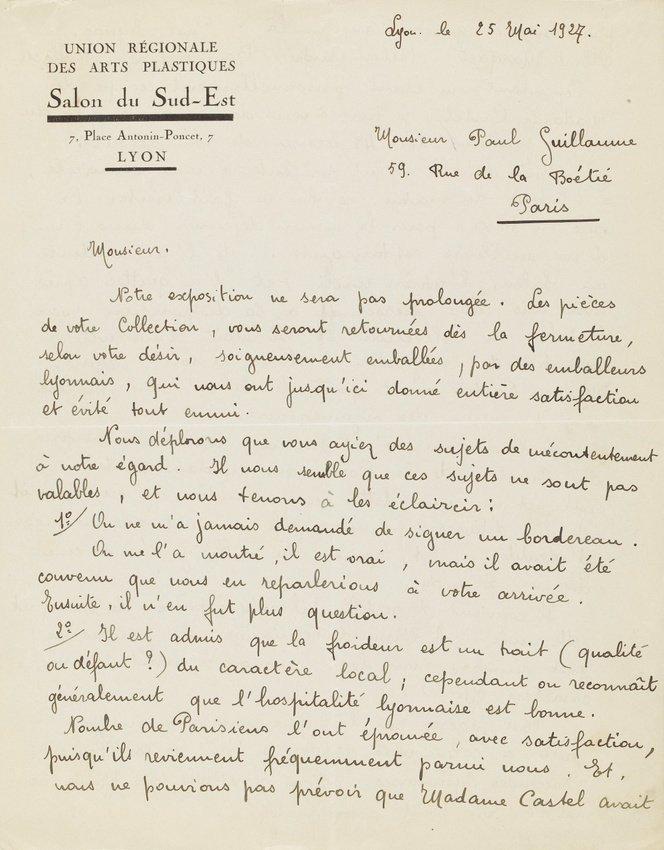 Lyon. le 25 Mai 1927.
UNION RÉGIONALE
DES ARTS PLASTIQUES
Salon du Sud-Est
7, Place Antonin-Poncet, 7
LYON
Monsieur Paul Guillaume
59. Rue de la Boétie
Paris
Monsieur.
Notre exposition ne sera pas prolongée. Les pièces
de votre Collection, vous seront retournées dès la fermeture,
selon votre désir, soigneusement emballées, par des emballeurs
lyonnais, qui nous ont jusqu'ici donné entière satisfaction
et évité tout ennui.
Nous déplorons que vous ayiez des sujets de mécontentement
à notre égard. Il nous semble que ces sujets ne sont pas
valables, et nous tenons à les éclaircir:
1º/ On ne m'a jamais demandé de signer un bordereau.
On me l'a montré, il est vrai, mais il avait été
convenu que nous en reparlerions à votre arrivée.
Ensuite, il n'en fut plus question.
2º/ Il est admis que la froideur est un trait (qualité
ou défaut?) du caractère local; cependant on reconnaît
généralement que l'hospitalité lyonnaise est bonne.
Nombre de Parisiens l'ont éprouvée, avec satisfaction,
puisqu'ils reviennent fréquemment parmi nous. Et,
nous ne pouvions pas prévoir que Madame Castel avait